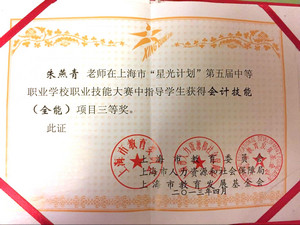 朱燕青 老师在上海市“星光计划”第五届中等
职业学校职业技能大赛中指导学生获得会计技能
(全能)项目三等奖。
此证
上海市教育委员会
上海市人力资源和社会保障局
上海市教育发展基金会
二○一三年四月